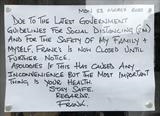 MON 23 MARCH 2020
DUE TO THE LATEST GOVERNMENT
GUIDELINES FOR SOCIAL DISTANCING (2M)
AND FOR THE SAFETY OF MY FAMILY +
MYSELF, FRANK'S IS NOW CLOSED UNTIL
FURTHER NOTICE.
APOLOGIES IF THIS HAS CAUSED ANY
INCONVENIENCE BUT THE MOST IMPORTANT
THING IS YOUR HEALTH.
STAY SAFE.
REGARDS.
FRANK.